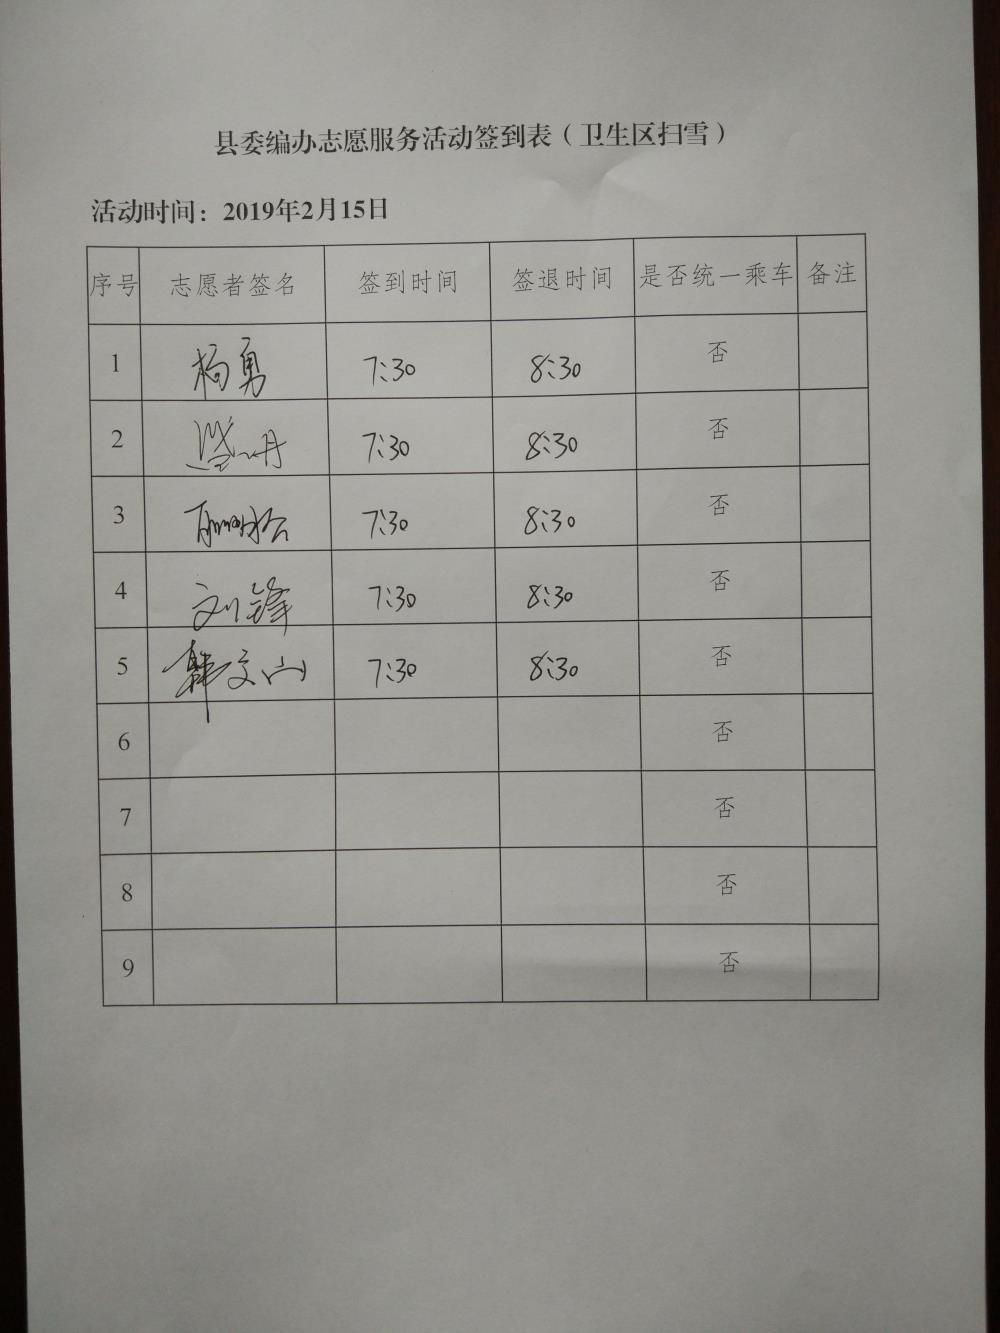 县委编办志愿服务活动签到表（卫生区扫雪）
活动时间：2019年2月15日
序号 志愿者签名 签到时间 签退时间 是否统一乘车 备注
1 杨勇 7:30 8:30 否
2 7:30 8:30 否
3 7:30 8:30 否
4 刘锋 7:30 8:30 否
5 韩文山 7:30 8:30 否
6 否
7 否
8 否
9 否